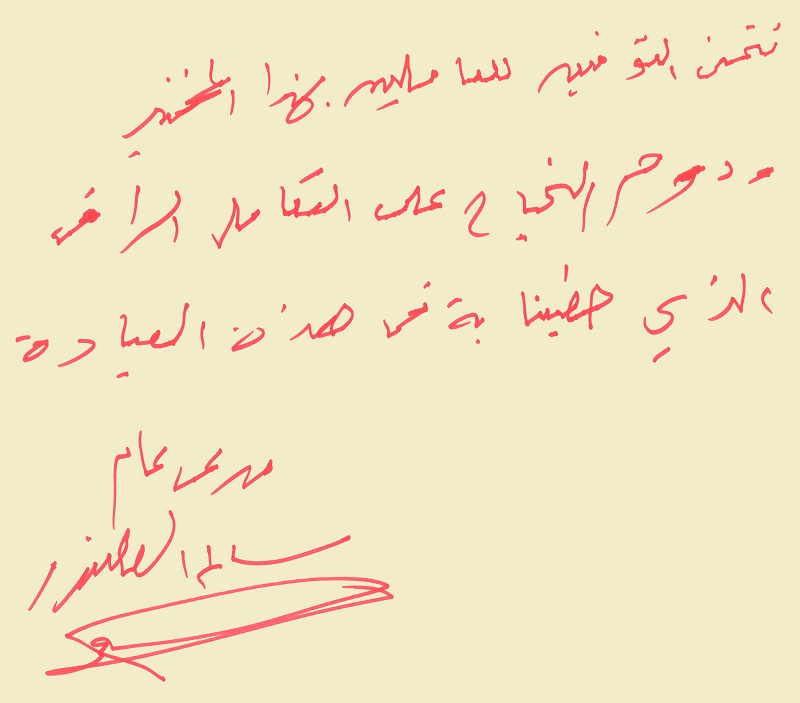 نتمنى التوفيق للعاملين بهذا المختبر
ودوم النجاح على التعامل الراقي
الذي حظينا به في هذه العيادة
مدعى عام
سالم